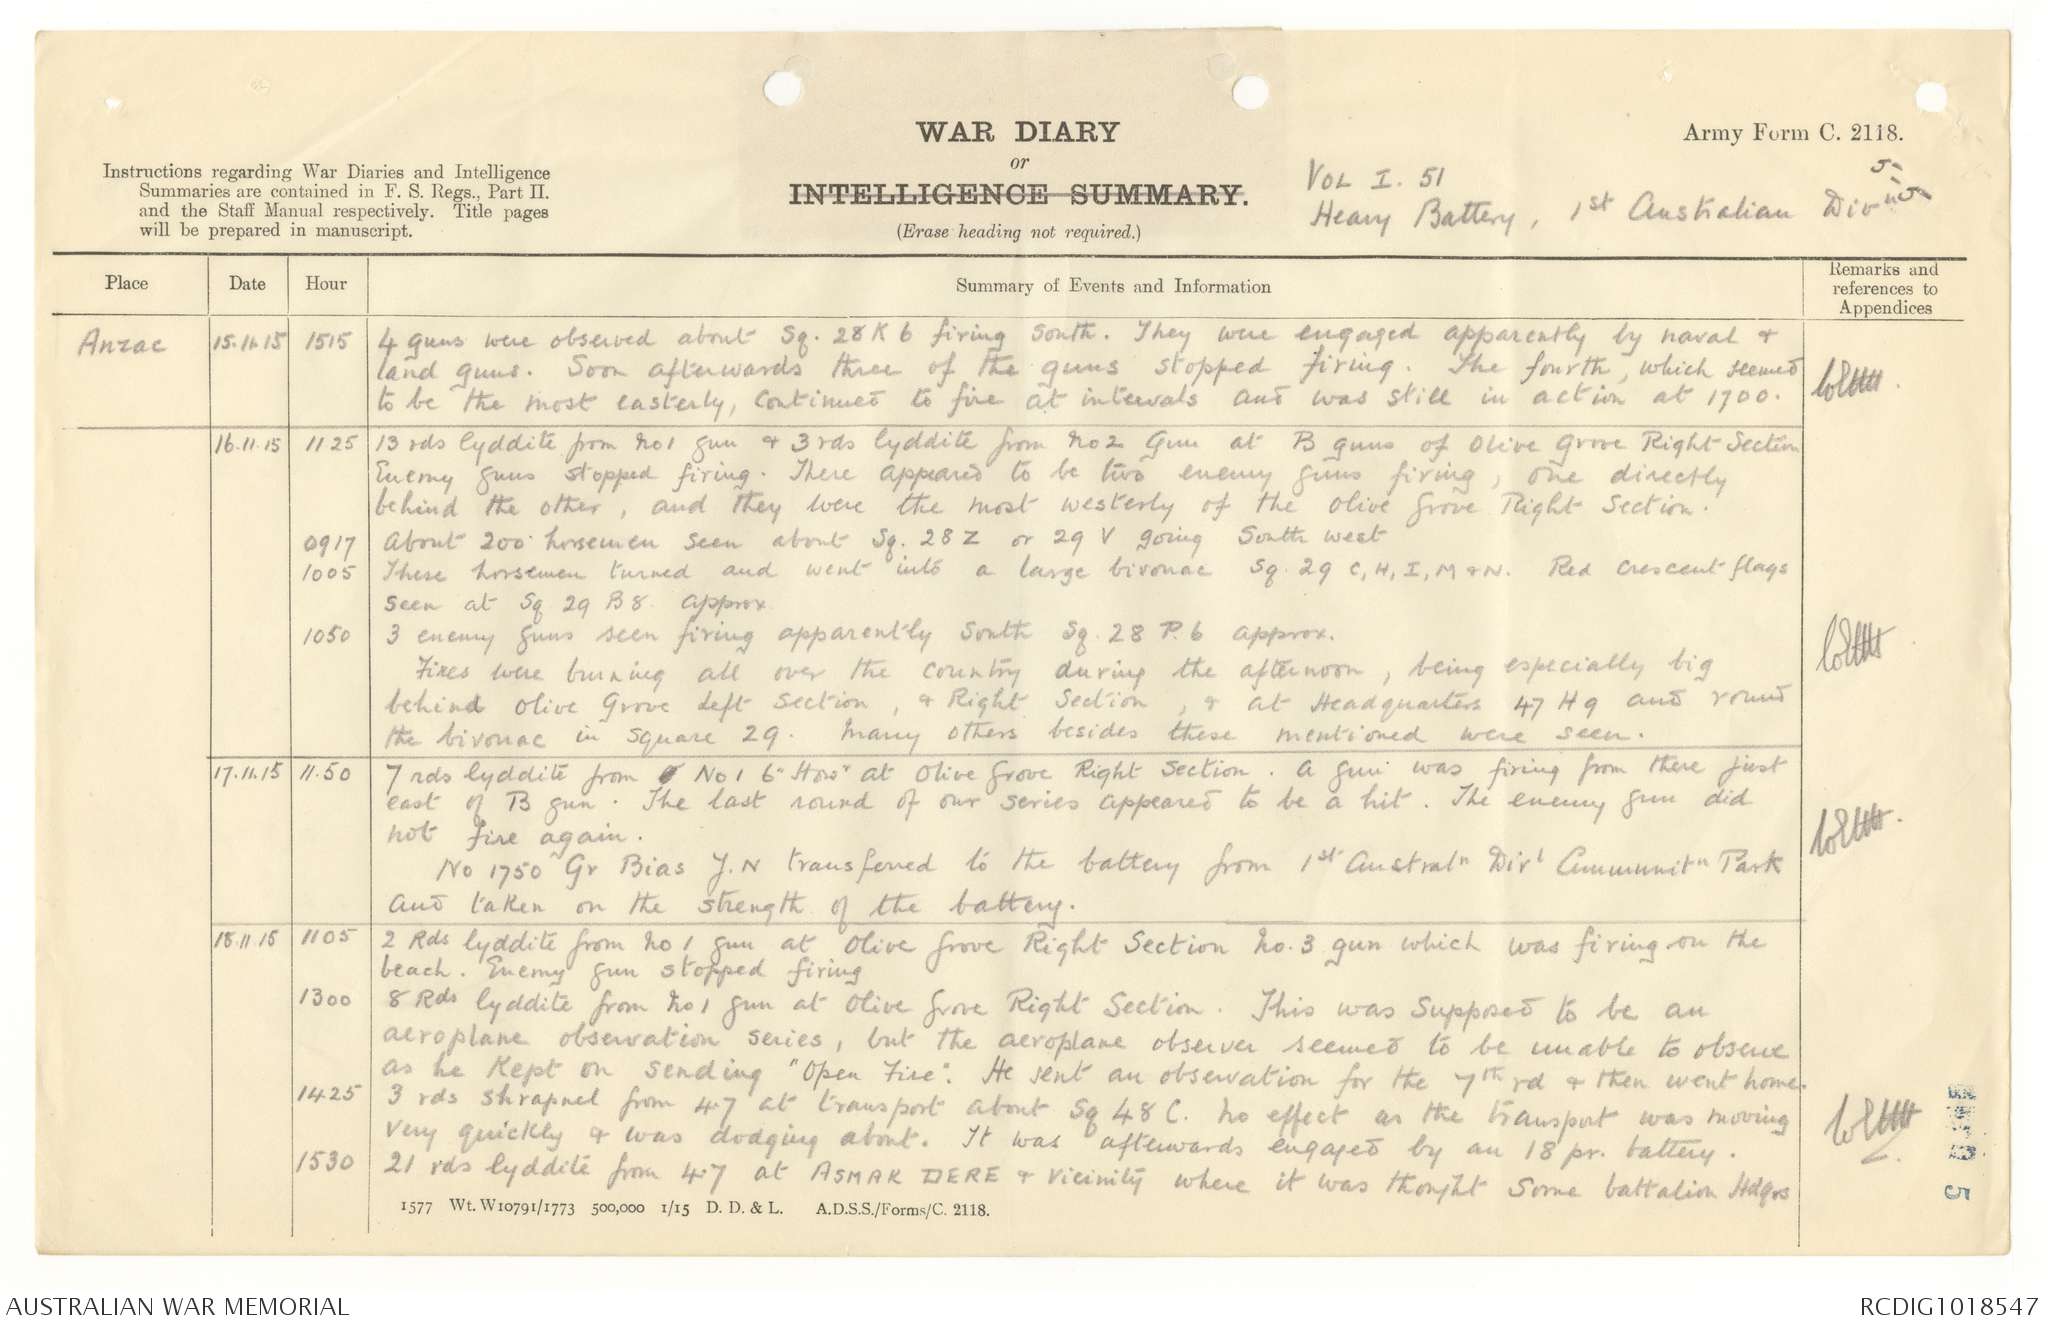 WAR DIARY
or
INTELLIGENCE SUMMARY.
(Erase heading not required.)
Army Form C. 2118.
Instructions regarding War Diaries and Intelligence
Summaries are contained in F. S. Regs., Part II.
and the Staff Manual respectively. Title pages
will be prepared in manuscript.
VOL I. 51
Heavy Battery, 1st Australian Divn
Place
Date
Hour
Summary of Events and Information
Remarks and
references to
Appendices
Anzac 15.11.15 1515 4 guns were observed about Sq. 28 K 6 firing South. They were engaged apparently by naval &
land guns. Soon afterwards three of the guns stopped firing. The fourth, which seemed
to be the most easterly, continued to fire at intervals and was still in action at 1700.
16.11.15 1125 13 rds lyddite from No1 gun & 3 rds lyddite from No2 Gun at B guns of Olive Grove Right Section
Enemy guns stopped firing. There appeared to be two enemy guns firing, one directly
behind the other, and they were the most westerly of the Olive Grove Right Section.
0917 About 200 horsemen seen about Sq. 28 Z or 29 V going South west
1005 These horsemen turned and went into a large bivouac Sq. 29 C, H, I, M & N. Red Crescent flags
seen at Sq 29 B 8 approx.
1050 3 enemy guns seen firing apparently South Sq. 28 P. 6 approx.
Fires were burning all over the country during the afternoon, being especially big
behind Olive Grove Left Section, & Right Section, & at Headquarters 47 H 9 and round
the bivouac in Square 29. Many others besides these mentioned were seen.
17.11.15 11.50 7 rds lyddite from No 1 6" How" at Olive Grove Right Section. A gun was firing from there just
east of B gun. The last round of our series appeared to be a hit. The enemy gun did
not fire again.
No 1750 Gr Bias J. N transferred to the battery from 1st Australn Divl Ammunitn Park
and taken on the strength of the battery.
18.11.15 1105 2 Rds lyddite from No 1 gun at Olive Grove Right Section No. 3 gun which was firing on the
beach. Enemy gun stopped firing
1300 8 Rds lyddite from No 1 gun at Olive Grove Right Section. This was supposed to be an
aeroplane observation series, but the aeroplane observer seemed to be unable to observe
as he kept on sending "Open Fire". He sent an observation for the 7th rd & then went home.
1425 3 rds shrapnel from 4.7 at transport about Sq 48 C. No effect as the transport was moving
very quickly & was dodging about. It was afterwards engaged by an 18 pr. battery.
1530 21 rds lyddite from 4.7 at ASMAK DERE & vicinity where it was thought some battalion Hdqrs
1577 Wt. W10791/1773 500,000 1/15 D. D. & L. A.D.S.S./Forms/C. 2118.
AUSTRALIAN WAR MEMORIAL
RCDIG1018547